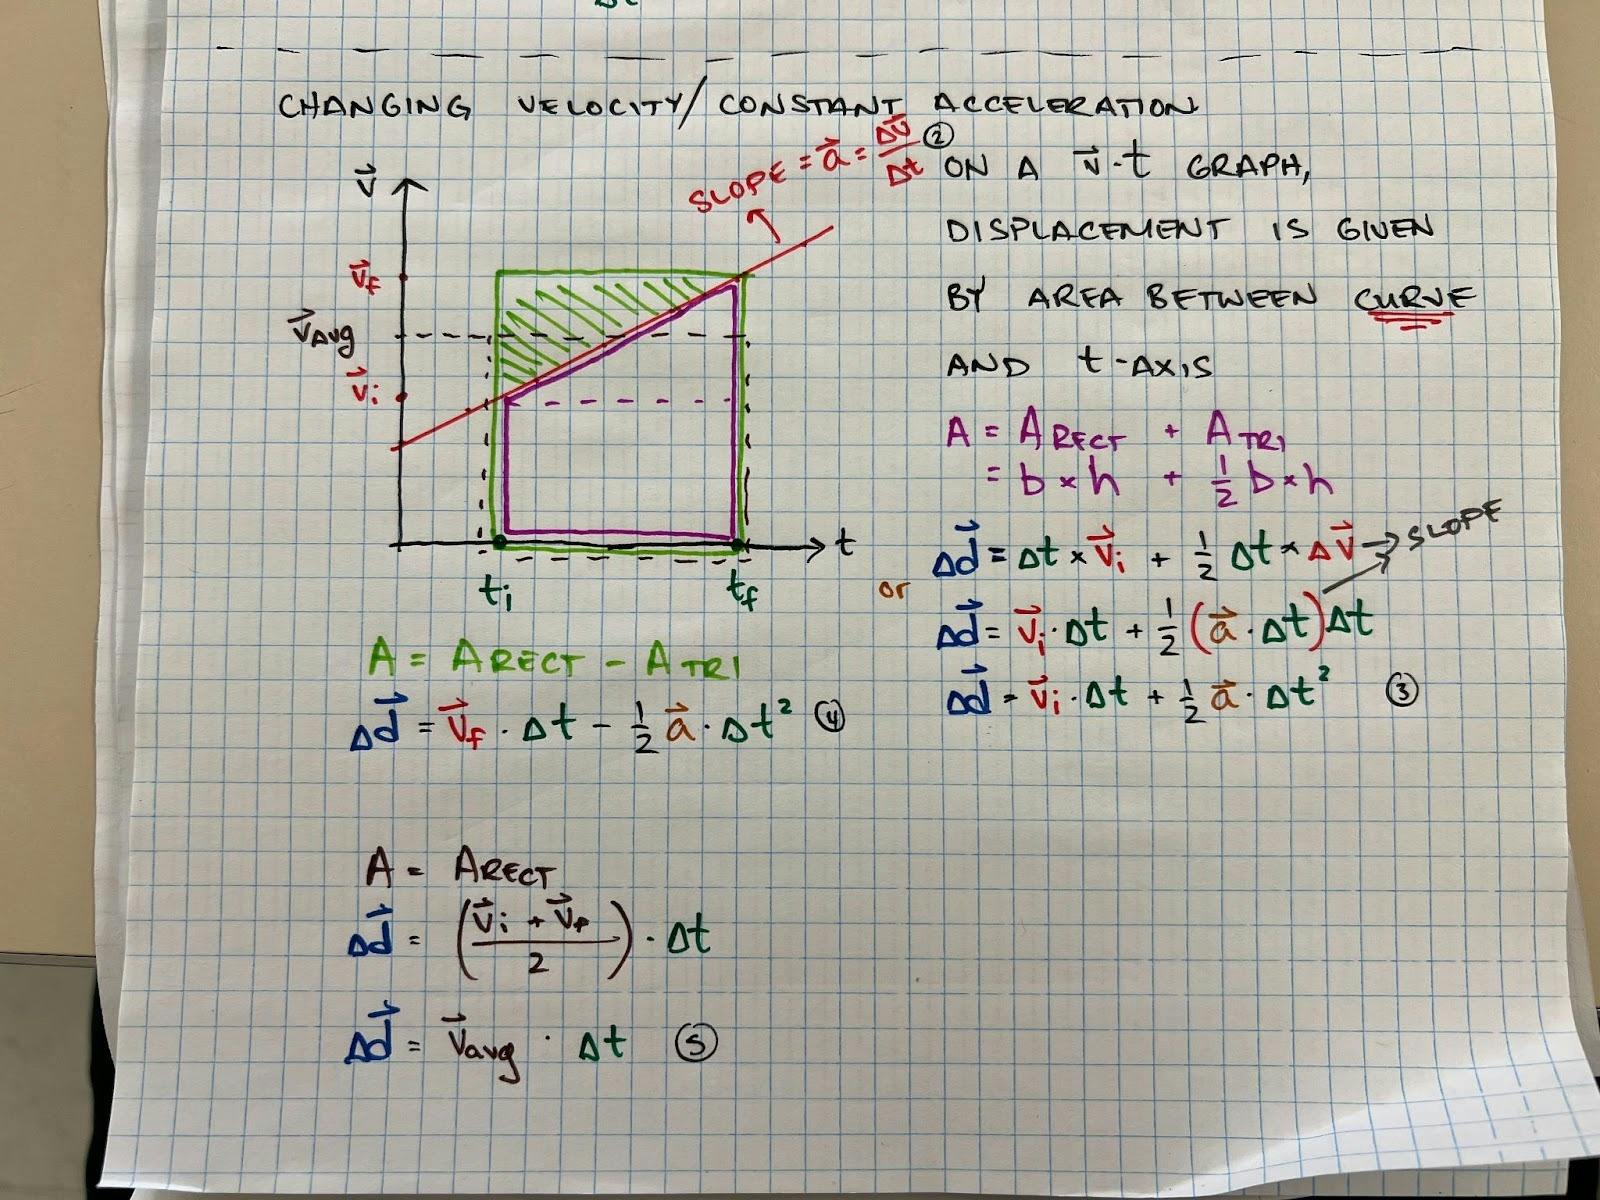 CHANGING VELOCITY/CONSTANT ACCELERATION
SLOPE = a⃗ = Δv⃗/Δt ②
v⃗
v⃗f
v⃗Avg
v⃗i
t
ti
tf
ON A v⃗-t GRAPH,
DISPLACEMENT IS GIVEN
BY AREA BETWEEN CURVE
AND t-AXIS
A = ARECT + ATRI
= b × h + 1/2 b × h
Δd⃗ = Δt × v⃗i + 1/2 Δt × Δv⃗ → SLOPE
or
Δd⃗ = v⃗i · Δt + 1/2 (a⃗ · Δt)Δt
Δd⃗ = v⃗i · Δt + 1/2 a⃗ · Δt² ③
A = ARECT - ATRI
Δd⃗ = v⃗f · Δt - 1/2 a⃗ · Δt² ④
A = ARECT
Δd⃗ = (v⃗i + v⃗f / 2) · Δt
Δd⃗ = v⃗avg · Δt ⑤